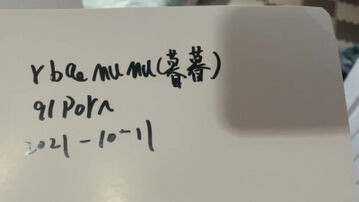 rbqe mu mu(暮暮)
91 Porn
2021-10-11